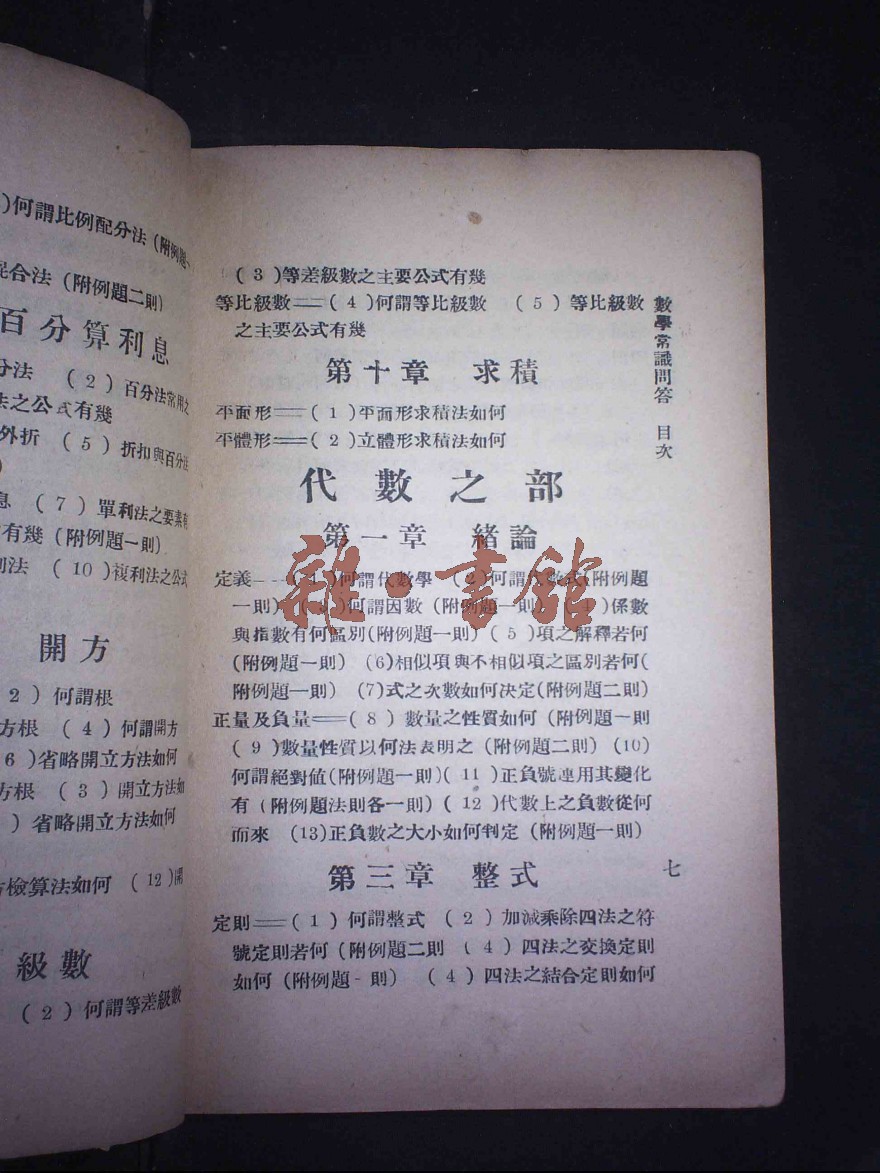 )何謂比例配分法(附例題一
混合法(附例題二則)
百分算利息
分法 (2)百分法常用之
法之公式有幾
外折 (5)折扣與百分法
息 (7)單利法之要素有
有幾(附例題一則)
利法 (10)複利法之公式
開方
2)何謂根
方根 (4)何謂開方
6)省略開立方法如何
方根 (3)開立方法如
)省略開立方法如何
方檢算法如何 (12)開
級數
(2)何謂等差級數
(3)等差級數之主要公式有幾
等比級數══(4)何謂等比級數 (5)等比級數
之主要公式有幾
第十章 求積
平面形══(1)平面形求積法如何
平體形══(2)立體形求積法如何
代數之部
第一章 緒論
定義——(1)何謂代數學 (2)何謂代數式(附例題
一則) (3)何謂因數(附例題一則) (4)係數
與指數有何區別(附例題一則) (5)項之解釋若何
(附例題一則) (6)相似項與不相似項之區別若何(
附例題一則) (7)式之次數如何決定(附例題二則)
正量及負量══(8)數量之性質如何(附例題一則
(9)數量性質以何法表明之(附例題二則) (10)
何謂絕對值(附例題一則)(11)正負號連用其變化
有(附例題法則各一則) (12)代數上之負數從何
而來 (13)正負數之大小如何判定(附例題一則)
第三章 整式
定則══(1)何謂整式 (2)加減乘除四法之符
號定則若何(附例題二則 (4)四法之交換定則
如何(附例題-則) (4)四法之結合定則如何
數學常識問答 目次
七
雜·書館